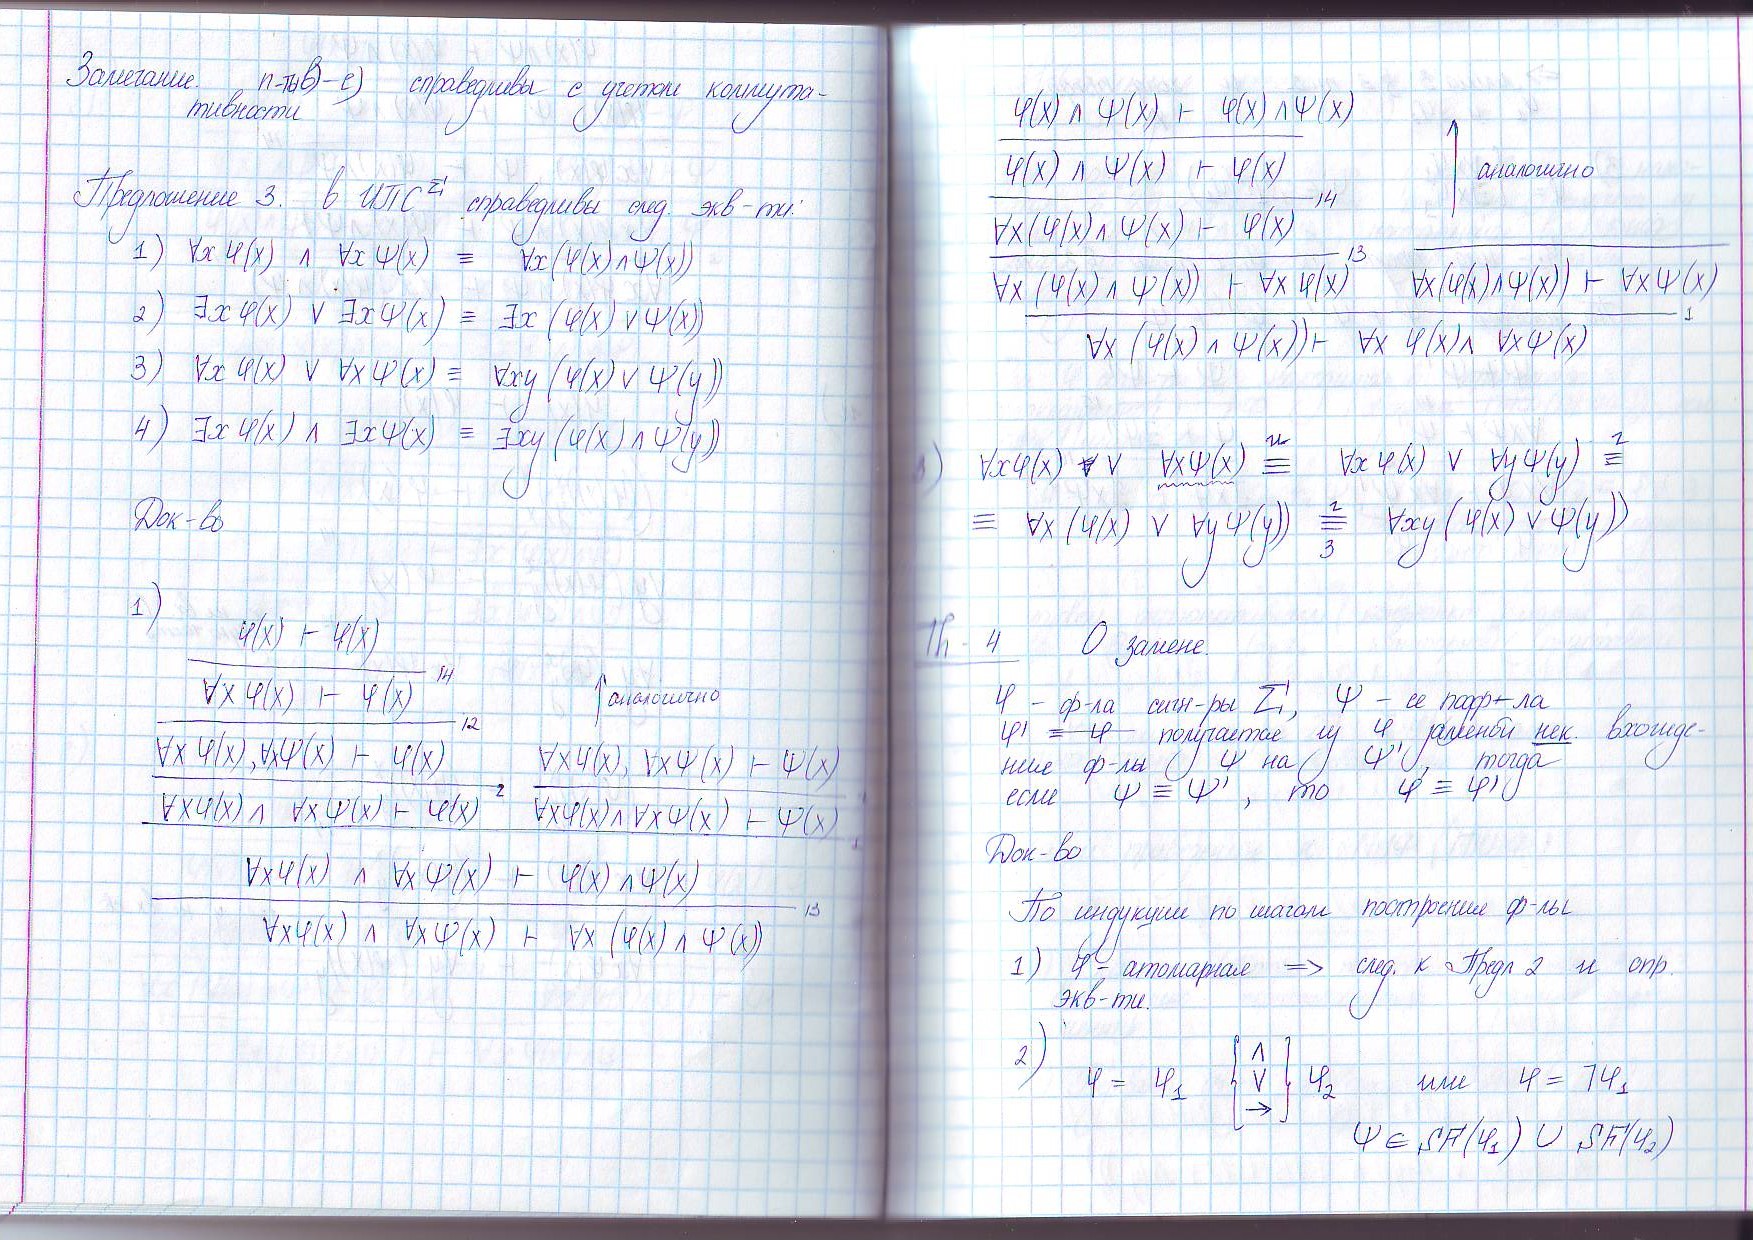 Замечание. п-ты в)-е) справедливы с учетом коммута-
тивности
Предложение 3. В ИПС^Σ справедливы след. экв-ти:
1) ∀xφ(x) ∧ ∀xψ(x) ≡ ∀x(φ(x)∧ψ(x))
2) ∃xφ(x) ∨ ∃xψ(x) ≡ ∃x(φ(x)∨ψ(x))
3) ∀xφ(x) ∨ ∀xψ(x) ≡ ∀xy(φ(x)∨ψ(y))
4) ∃xφ(x) ∧ ∃xψ(x) ≡ ∃xy(φ(x)∧ψ(y))
Док-во
1)
φ(x) ⊢ φ(x)
14
∀xφ(x) ⊢ φ(x) ↑аналогично
12
∀xφ(x), ∀xψ(x) ⊢ φ(x) ∀xφ(x), ∀xψ(x) ⊢ ψ(x)
2
∀xφ(x) ∧ ∀xψ(x) ⊢ φ(x) ∀xφ(x)∧∀xψ(x) ⊢ ψ(x)
1
∀xφ(x) ∧ ∀xψ(x) ⊢ φ(x)∧ψ(x)
13
∀xφ(x) ∧ ∀xψ(x) ⊢ ∀x(φ(x)∧ψ(x))
φ(x) ∧ ψ(x) ⊢ φ(x)∧ψ(x)
φ(x) ∧ ψ(x) ⊢ φ(x) ↑ аналогично
14
∀x(φ(x)∧ψ(x) ⊢ φ(x)
13
∀x(φ(x)∧ψ(x)) ⊢ ∀xφ(x) ∀x(φ(x)∧ψ(x)) ⊢ ∀xψ(x)
1
∀x(φ(x)∧ψ(x)) ⊢ ∀xφ(x)∧ ∀xψ(x)
3) ∀xφ(x) ∨ ∀xψ(x) ≡ ∀xφ(x) ∨ ∀yψ(y) ≡
≡ ∀x(φ(x) ∨ ∀yψ(y)) ≡ ∀xy(φ(x)∨ψ(y))
3
Th-4 О замене.
φ - ф-ла сигн-ры Σ, ψ - ее подф-ла
φ' ≡ φ получается из φ, заменой нек. вхожде-
ние ф-лы ψ на ψ', тогда
если ψ ≡ ψ', то φ ≡ φ'
Док-во
По индукции по шагам построения ф-лы
1) φ - атомарная => след. к Предл 2 и опр.
экв-ти.
2) φ = φ₁ {∧ ∨ →} φ₂ или φ = ¬φ₁
ψ ∈ SF(φ₁) ∪ SF(φ₂)